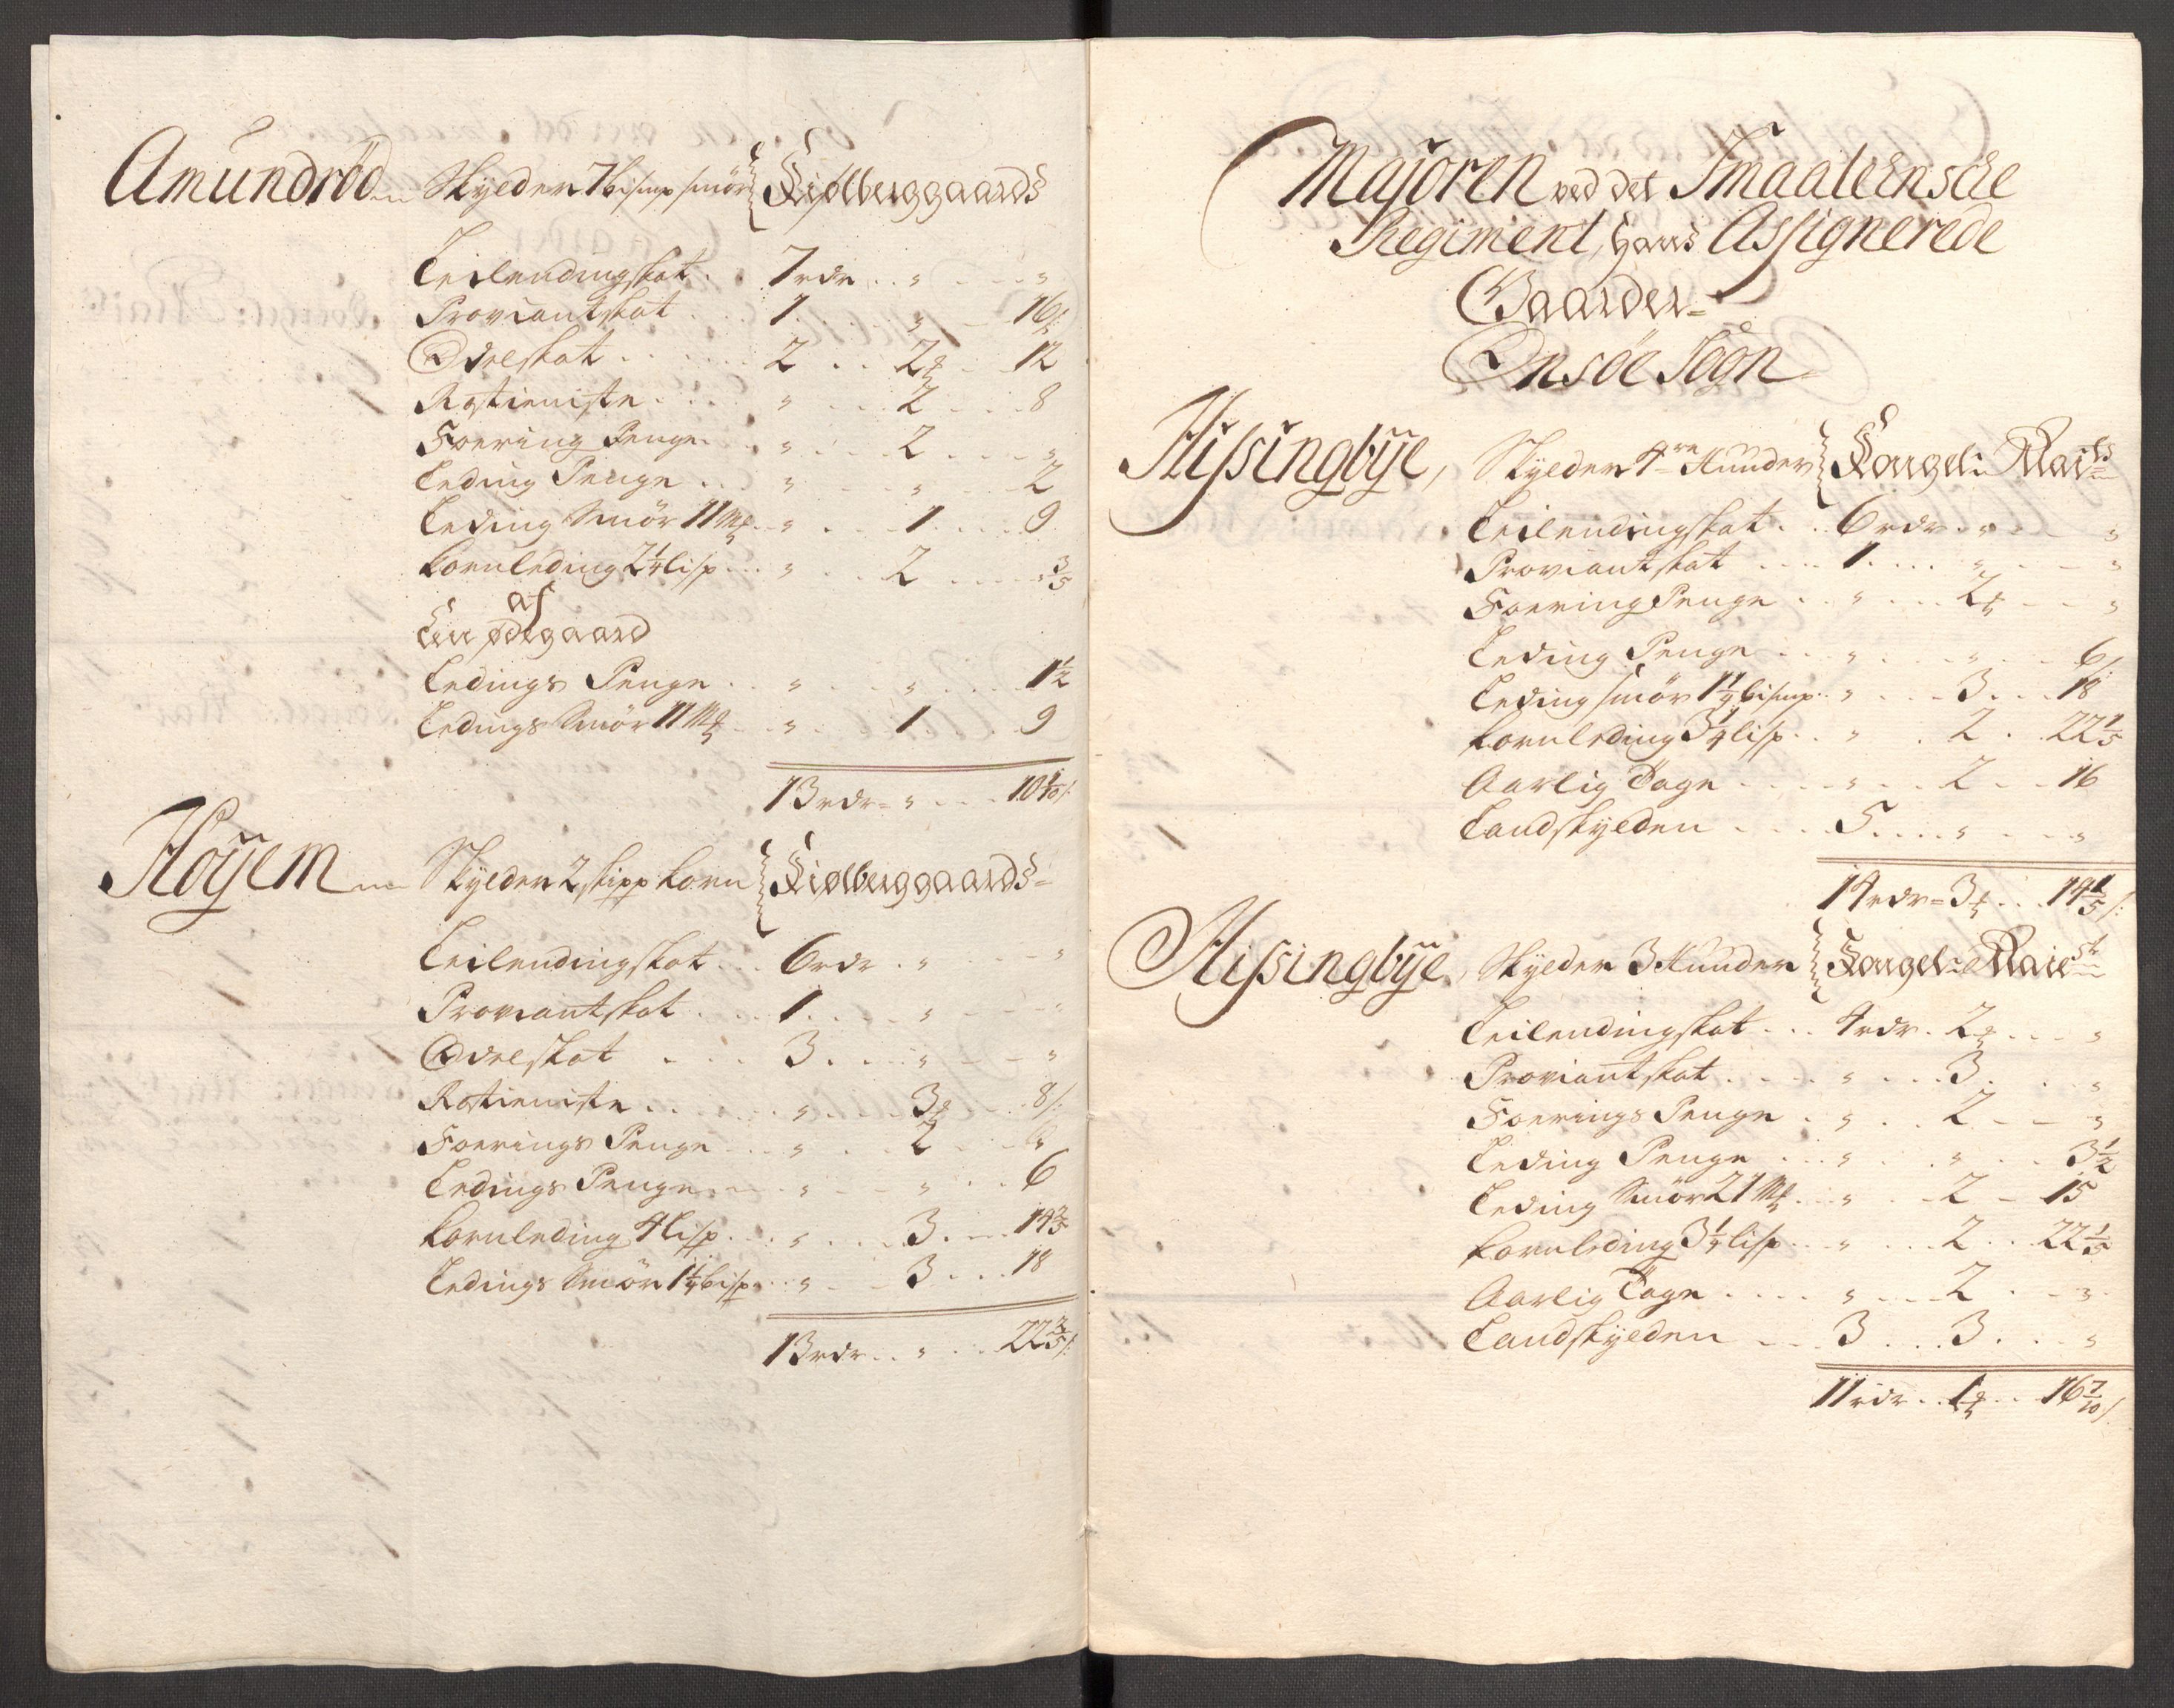 Amundröd Skylder 7 bismp smör Kiølberggaards
Leilendingskat . 7 rdr . . " . . "
Proviantskat . . 1 . . " . . 16 ß
Odelskat . . . 2 . . 2 ₰ . . 12
Rostieniste . . . " . . 2 . . 8
Foering Penge . . " . . 2 . . "
Leding Penge . . " . . " . . 2
Leding Smör 11 m₰ . . " . . 1 . . 9
Kornleding 2¼ lisp . . " . . 2 . . 3/5
af
En ødegaard
Ledings Penge . . " . . " . . 1½
Ledings Smör 11 m₰ . . " . . 1 . . 9
13 rdr = " . . 10 1/10 /:
Höÿem Skylder 2 skipp korn Kiølberggaards
Leilendingskat . . 6 rdr . " . . "
Proviantskat . . 1 . . " . . "
Odelskat . . . 3 . . " . . "
Rostieniste . . . " . . 3 ₰ . . 8 /:
Foerings Penge . . " . . 2 . . "
Ledings Penge . . " . . " . . 6
Kornleding 4 lisp . . " . . 3 . . 14 2/5
Ledings Smör 1¼ bisp . . " . . 3 . . 18
13 rdr . . " . . 22 2/5 /:
Majoren ved det Smaalensche
Regiment, hans Assignerede
Gaarder
Onsöe Sogn
Hissingbÿe, Skylder 4re Hunder Kongel: Maits
Leilendingskat . . 6 rdr . . " . . "
Proviantskat . . . 1 . . " . . "
Foering Penge . . " . . 2 ₰ . . "
Leding Penge . . " . . " . . 6 /:
Leding smör 1¼ bismp . . " . . 3 . . 18
Kornleding 3¼ lisp . . " . . 2 . . 22 1/5
Aarlig Tage . . . " . . 2 . . 16
Landskylden . . . 5 . . " . . "
14 rdr = 3 ₰ . . 14 1/5 /:
Hissingbÿe, Skylder 3 Hunder Kongel: Maiest
Leilendingskat . . 4 rdr . 2 ₰ . . "
Proviantskat . . . " . . 3 . . "
Foerings Penge . . " . . 2 . . "
Leding Penge . . " . . " . . 3½
Leding Smör 21 m₰ . . " . . 2 . . 15
Kornleding 3¼ lisp . . " . . 2 . . 22 1/5
Aarlig Tage . . . " . . 2 . . "
Landskylden . . 3 . . 3 . . "
11 rdr . . 1 ₰ . . 16 7/10 /: